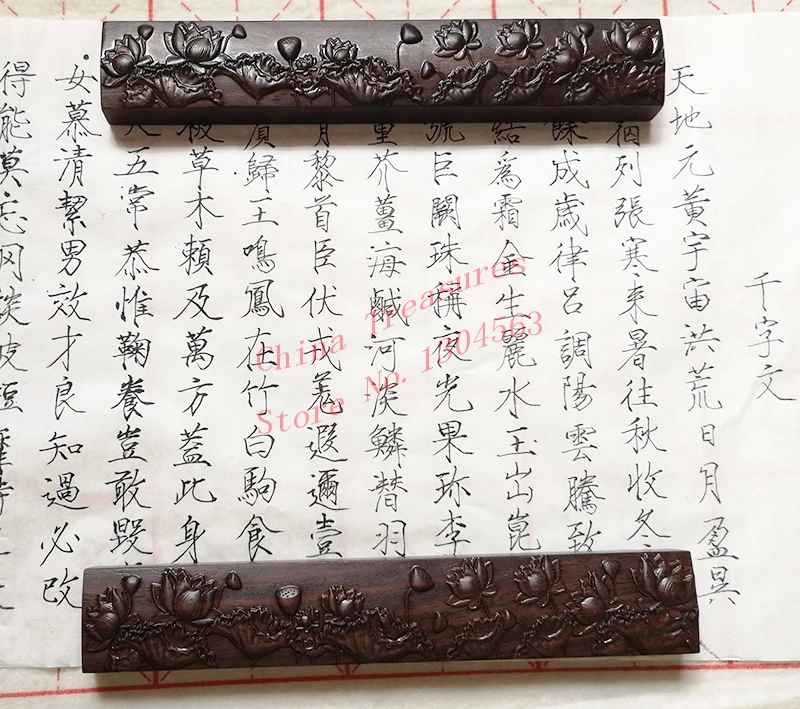 千字文
天地元黃宇宙洪荒日月盈昃
列張寒来暑往秋收冬
餘成歲律呂調陽雲騰致
結爲霜金生麗水玉出崑
號巨闕珠稱夜光果珍李
重芥薑海鹹河淡鱗潛羽
黎首臣伏戎羌遐邇壹
賓歸王鳴鳳在竹白駒食
被草木賴及萬方蓋此身
五常恭惟鞠養豈敢毀
女慕清絜男效才良知過必改
得能莫忘罔談彼短靡恃
China Treasures
Store No. 1304563